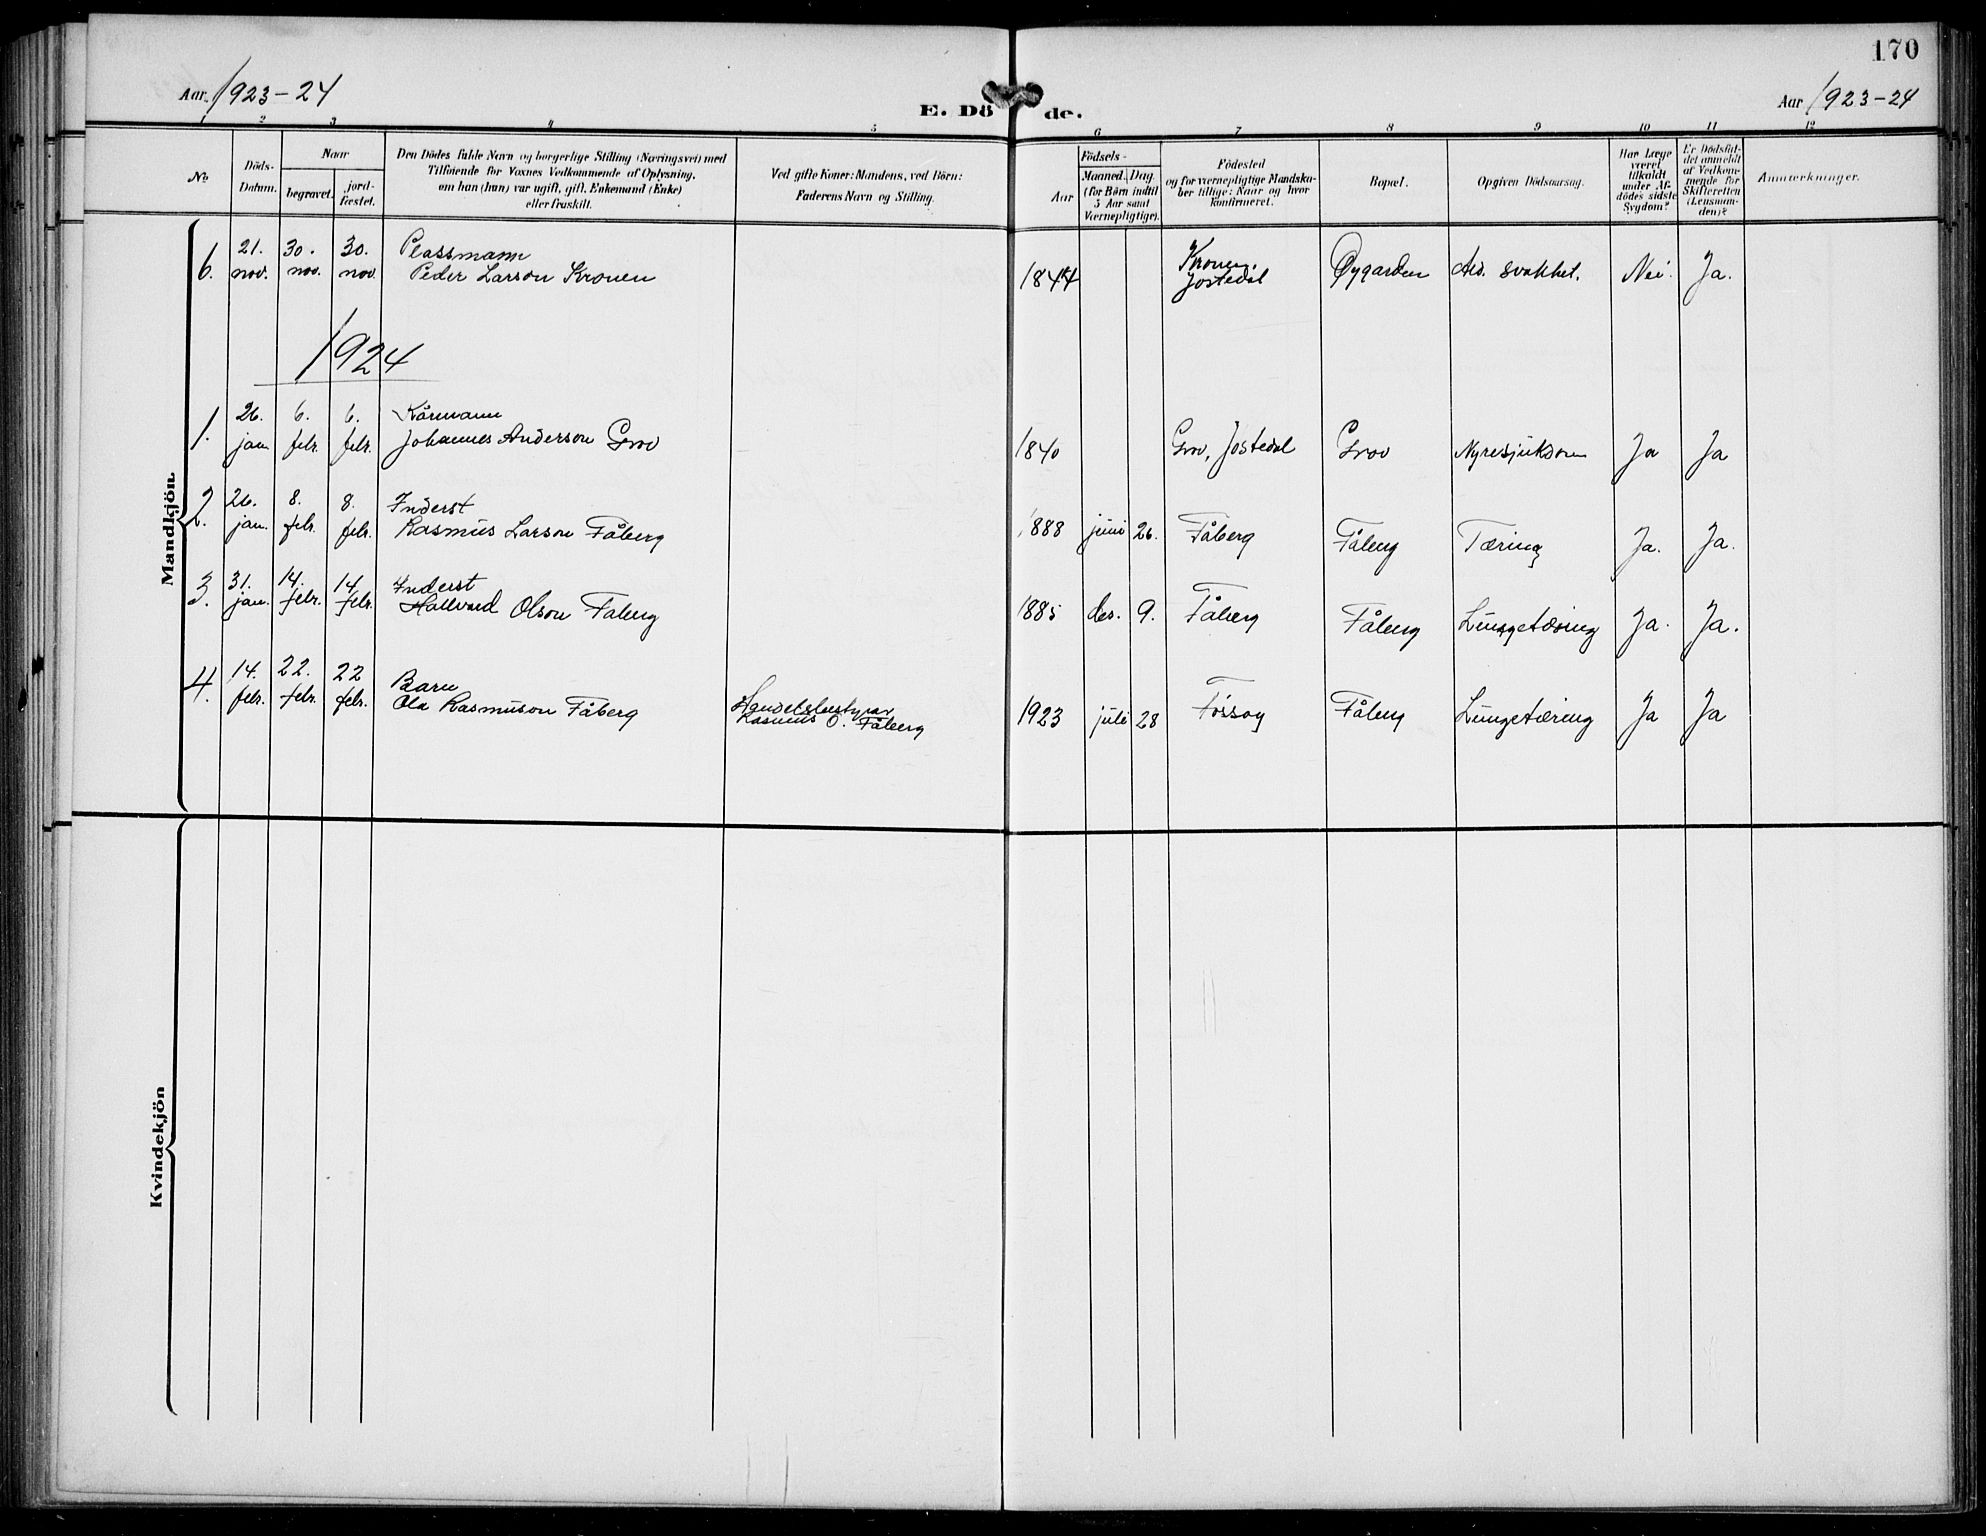 170
Aar 1923-24
E. Döde.
Aar 1923-24
1 2 3 4 5 6 7 8 9 10 11 12
No
Döds-
Datum.
Naar
begravet.
jord-
fæstet.
Den Dödes fulde Navn og borgerlige Stilling (Næringsvei) med
Tilföiende for Voxnes Vedkommende af Oplysning,
om han (hun) var ugift, gift, Enkemand (Enke)
eller fraskilt.
Ved gifte Koner: Mandens, ved Börn:
Faderens Navn og Stilling.
Födsels-
Aar
Maaned. Dag.
(for Börn indtil
5 Aar samt
Værnepligtige).
Födested
og for værnepligtige Mandska-
ber tillige: Naar og hvor
konfirmeret.
Bopæl.
Opgiven Dödsaarsag.
Har Læge
været
tilkaldt
under Af-
dödes sidste
Sygdom?
Er Dödsfal-
det anmeldt
af Vedkom-
mende for
Skifteretten
(Lensman-
den)?
Anmærkninger.
Mandkjön.
6. 21. nov. 30. nov. 30. nov. Plassmann
Peder Larson Kronen 1844 Kronen, Jostedal Øygarden Ald. svakhet. Nei. Ja.
1924
1. 26. jan 6. febr. 6. febr. Kårmann
Johannes Anderson Grov 1840 Grov, Jostedal Grov Nyresjukdom Ja Ja
2. 26. jan. 8. febr. 8. febr. Inderst
Rasmus Larson Fåberg 1888 juni 26. Fåberg Fåberg Tæring Ja. Ja.
3. 31. jan. 14. febr. 14 febr. Inderst
Hallvard Olson Faberg 1885 des. 9. Fåberg Fåberg Lungetæring Ja. Ja.
4. 14. febr. 22. febr. 22 febr. Barn
Ola Rasmuson Fåberg Handelsbestyrar
Rasmus O. Fåberg 1923 juli 28 Fossøy Fåberg Lungetæring Ja Ja
Kvindekjön